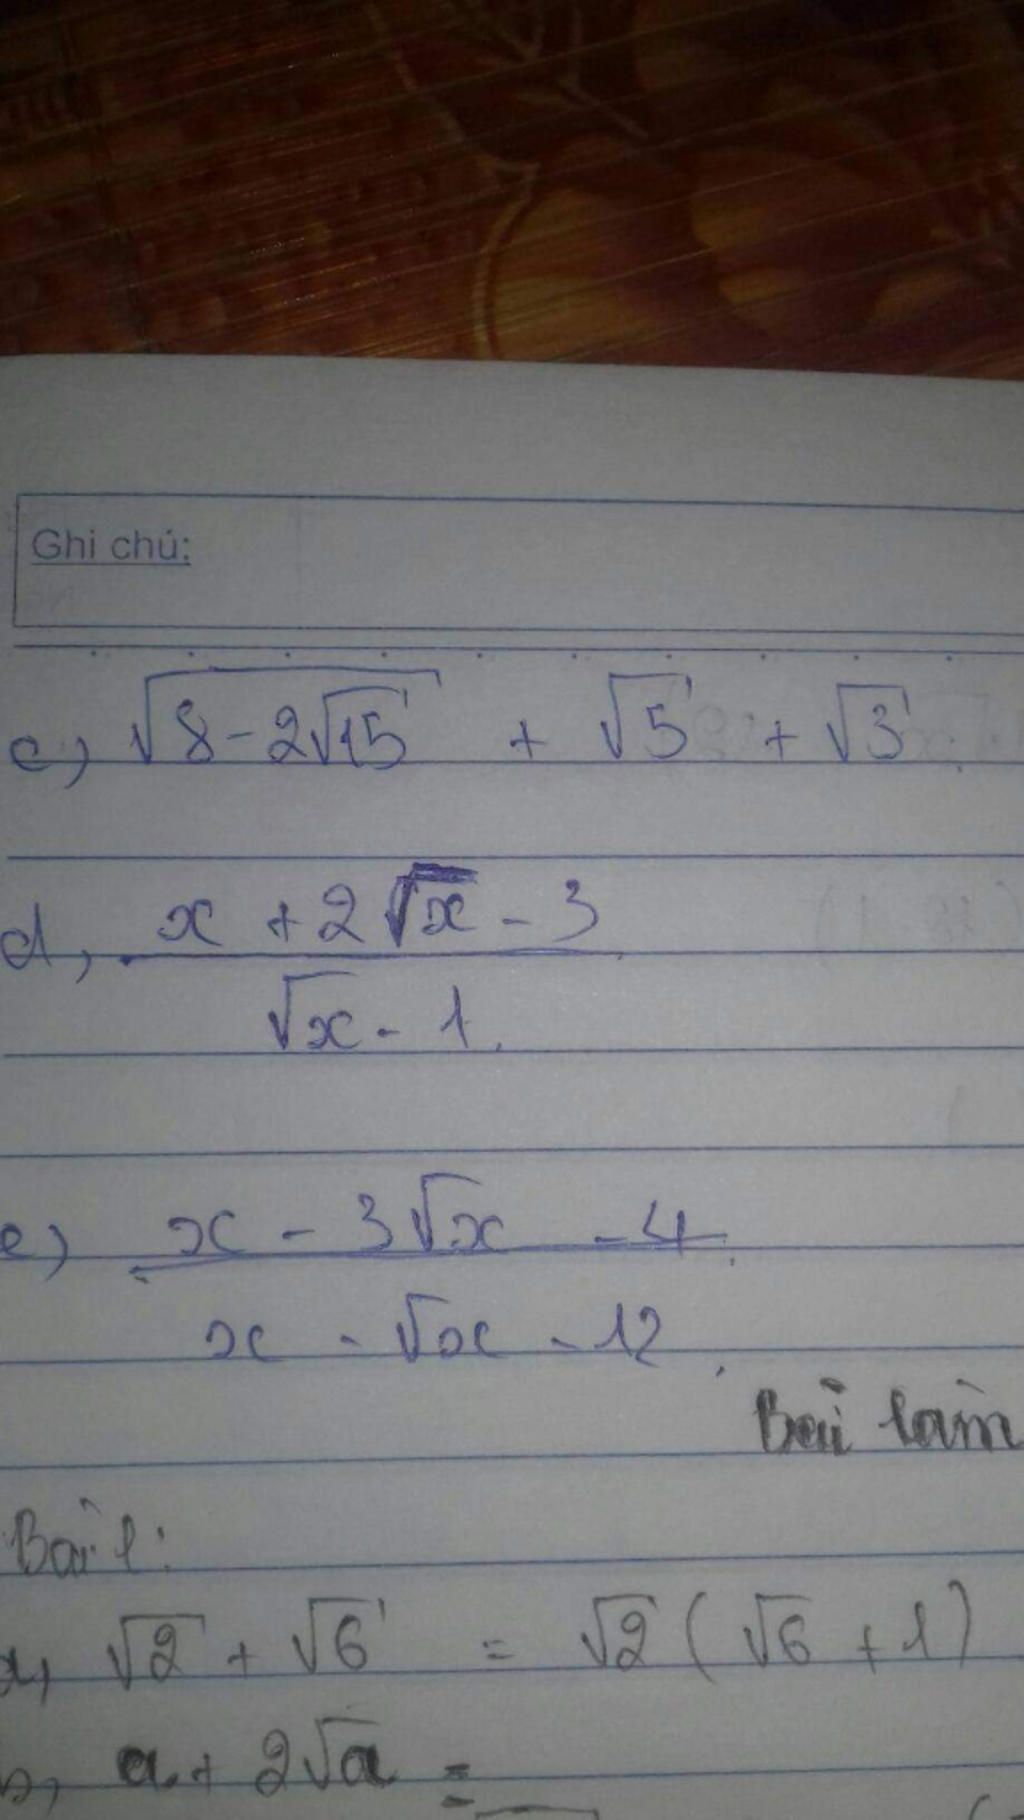 Ghi chú:
c) √(8-2√15) + √5 + √3.
d, (x + 2√x - 3)/(√x - 1).
e) (x - 3√x - 4)/(x - √x - 12).
Bài làm
Bài 1:
a, √2 + √6 = √2 (√6 + 1)
b, a + 2√a =